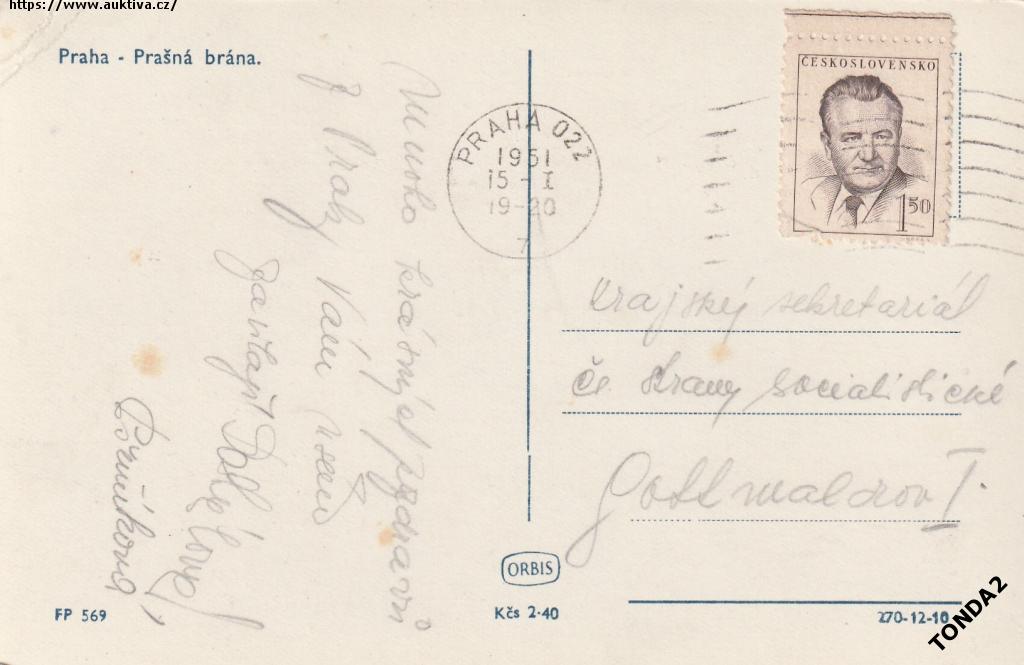 https://www.auktiva.cz/
Praha - Prašná brána.
Mnoho krásných pozdravů
z Prahy Vám všem
Tománková
PRAHA 022
1951
15-I
19-20
7
ČESKOSLOVENSKO
1 50
Krajský sekretariát
čs strany socialistické
Gottwaldov I.
ORBIS
FP 569
Kčs 2·40
270-12-10
TONDA2